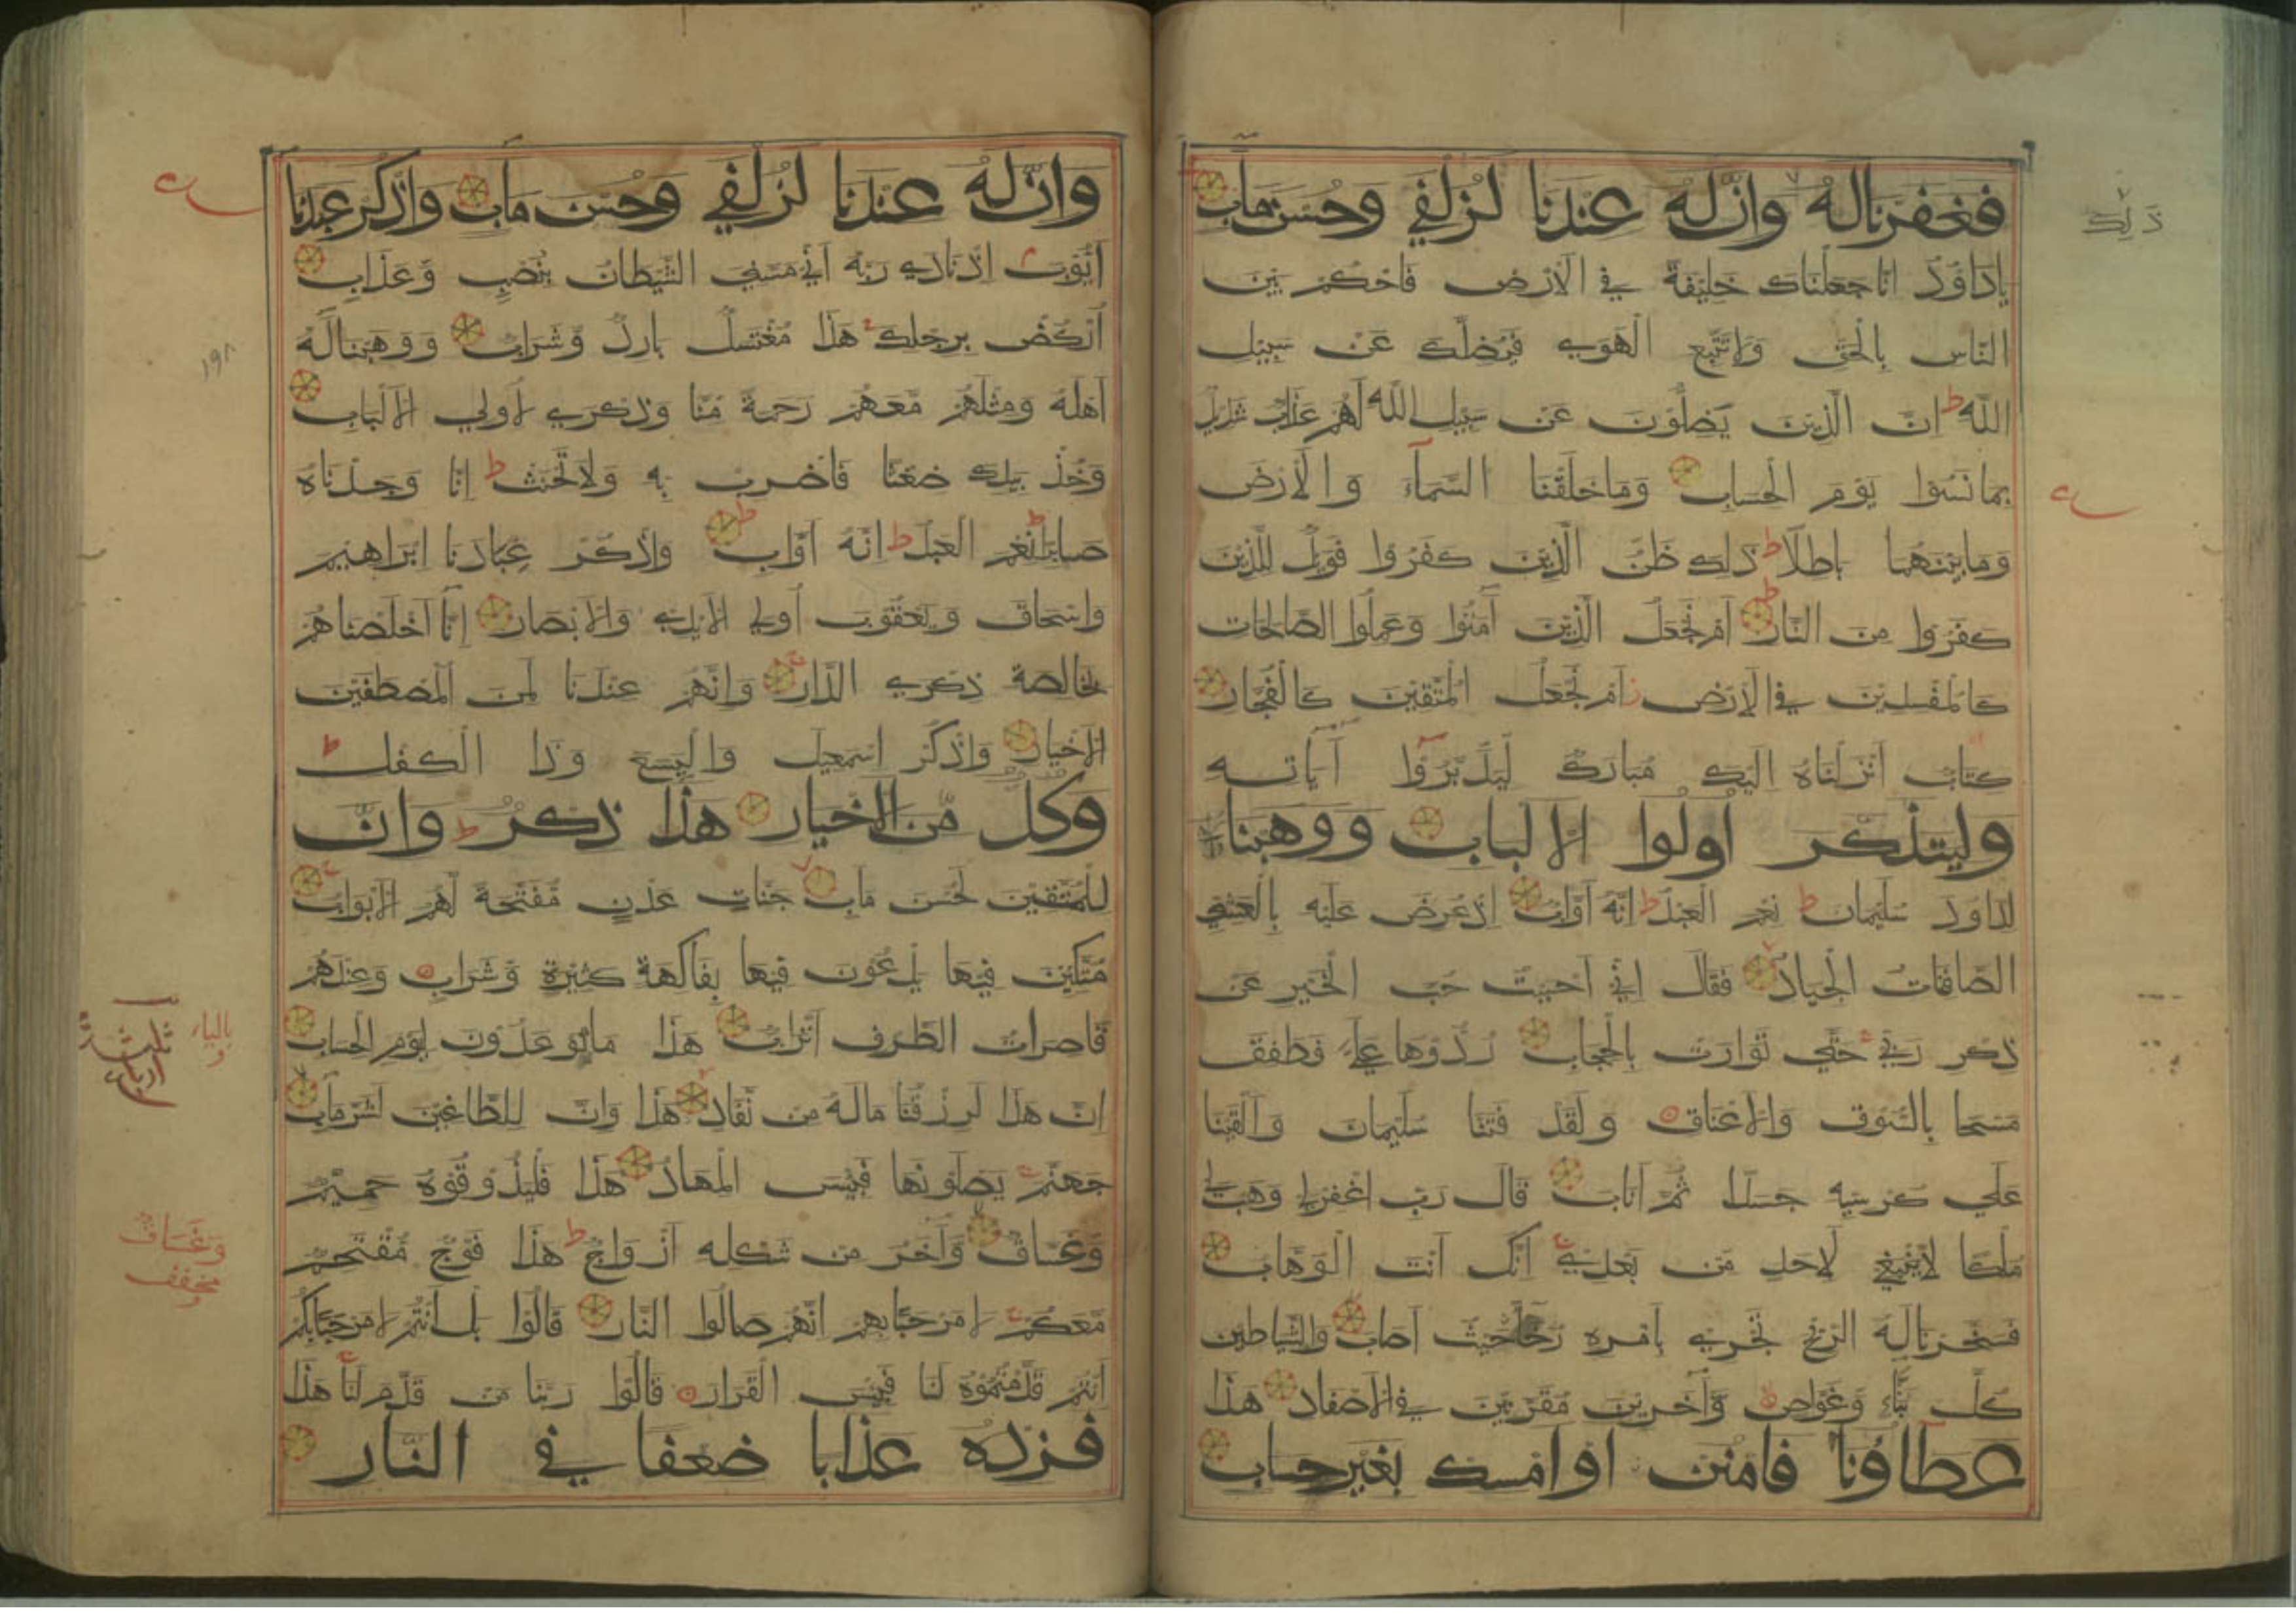 ذلك
فغفرنا له وان له عندنا لزلفي وحسن ماب
ياداوود انا جعلناك خليفة في الارض فاحكم بين
الناس بالحق ولا تتبع الهوي فيضلك عن سبيل
الله ط ان الذين يضلون عن سبيل الله لهم عذاب شديد
بما نسوا يوم الحساب وما خلقنا السمآء والارض
وما بينهما باطلا ط ذلك ظن الذين كفروا فويل للذين
كفروا من النار ط ام نجعل الذين آمنوا وعملوا الصالحات
كالمفسدين في الارض ز ام نجعل المتقين كالفجار
كتاب انزلناه اليك مبارك ليدبروا آياته
وليتذكر اولوا الالباب ووهبنا
لداود سليمان ط نعم العبد ط انه اواب اذ عرض عليه بالعشي
الصافنات الجياد فقال اني احببت حب الخير عن
ذكر ربي حتي توارت بالحجاب ردوها علي فطفق
مسحا بالسوق والاعناق ولقد فتنا سليمان والقينا
علي كرسيه جسدا ثم اناب قال رب اغفرلي وهب لي
ملكا لا ينبغي لاحد من بعدي انك انت الوهاب
فسخرنا له الريح تجري بامره رخآء حيث اصاب والشياطين
كل بناء وغواص وآخرين مقرنين في الاصفاد هذا
عطاؤنا فامنن او امسك بغير حساب
وان له عندنا لزلفي وحسن ماب واذكر عبدنا
ايوب اذ نادي ربه اني مسني الشيطان بنصب وعذاب
اركض برجلك هذا مغتسل بارد وشراب ووهبنا له
اهله ومثلهم معهم رحمة منا وذكري لاولي الالباب
١٩٨
وخذ بيدك ضغثا فاضرب به ولا تحنث ط انا وجدناه
صابرا ط نعم العبد ط انه اواب ط واذكر عبادنا ابراهيم
واسحاق ويعقوب اولي الايدي والابصار انا اخلصناهم
بخالصة ذكري الدار وانهم عندنا لمن المصطفين
الاخيار واذكر اسمعيل واليسع وذا الكفل ط
وكل من الاخيار هذا ذكر ط وان
للمتقين لحسن ماب جنات عدن مفتحة لهم الابواب
متكين فيها يدعون فيها بفاكهة كثيرة وشراب وعندهم
قاصرات الطرف اتراب هذا ما توعدون ليوم الحساب
بالياء
ان هذا لرزقنا ماله من نفاد هذا وان للطاغين لشر ماب
جهنم يصلونها فبيس المهاد هذا فليذوقوه حميم
وغساق وآخر من شكله ازواج ط هذا فوج مقتحم
وغساق
مخفف
معكم لا مرحبا بهم انهم صالوا النار قالوا بل انتم لا مرحبا بكم
انتم قدمتموه لنا فبيس القرار قالوا ربنا من قدم لنا هذا
فزده عذابا ضعفا في النار